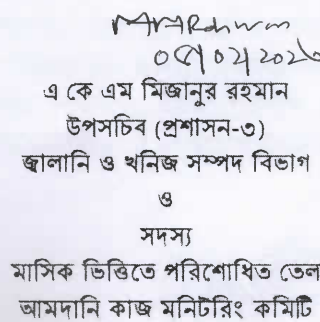 ০৫/০২/২০২৬
এ কে এম মিজানুর রহমান
উপসচিব (প্রশাসন-৩)
জ্বালানি ও খনিজ সম্পদ বিভাগ
ও
সদস্য
মাসিক ভিত্তিতে পরিশোধিত তেল
আমদানি কাজ মনিটরিং কমিটি